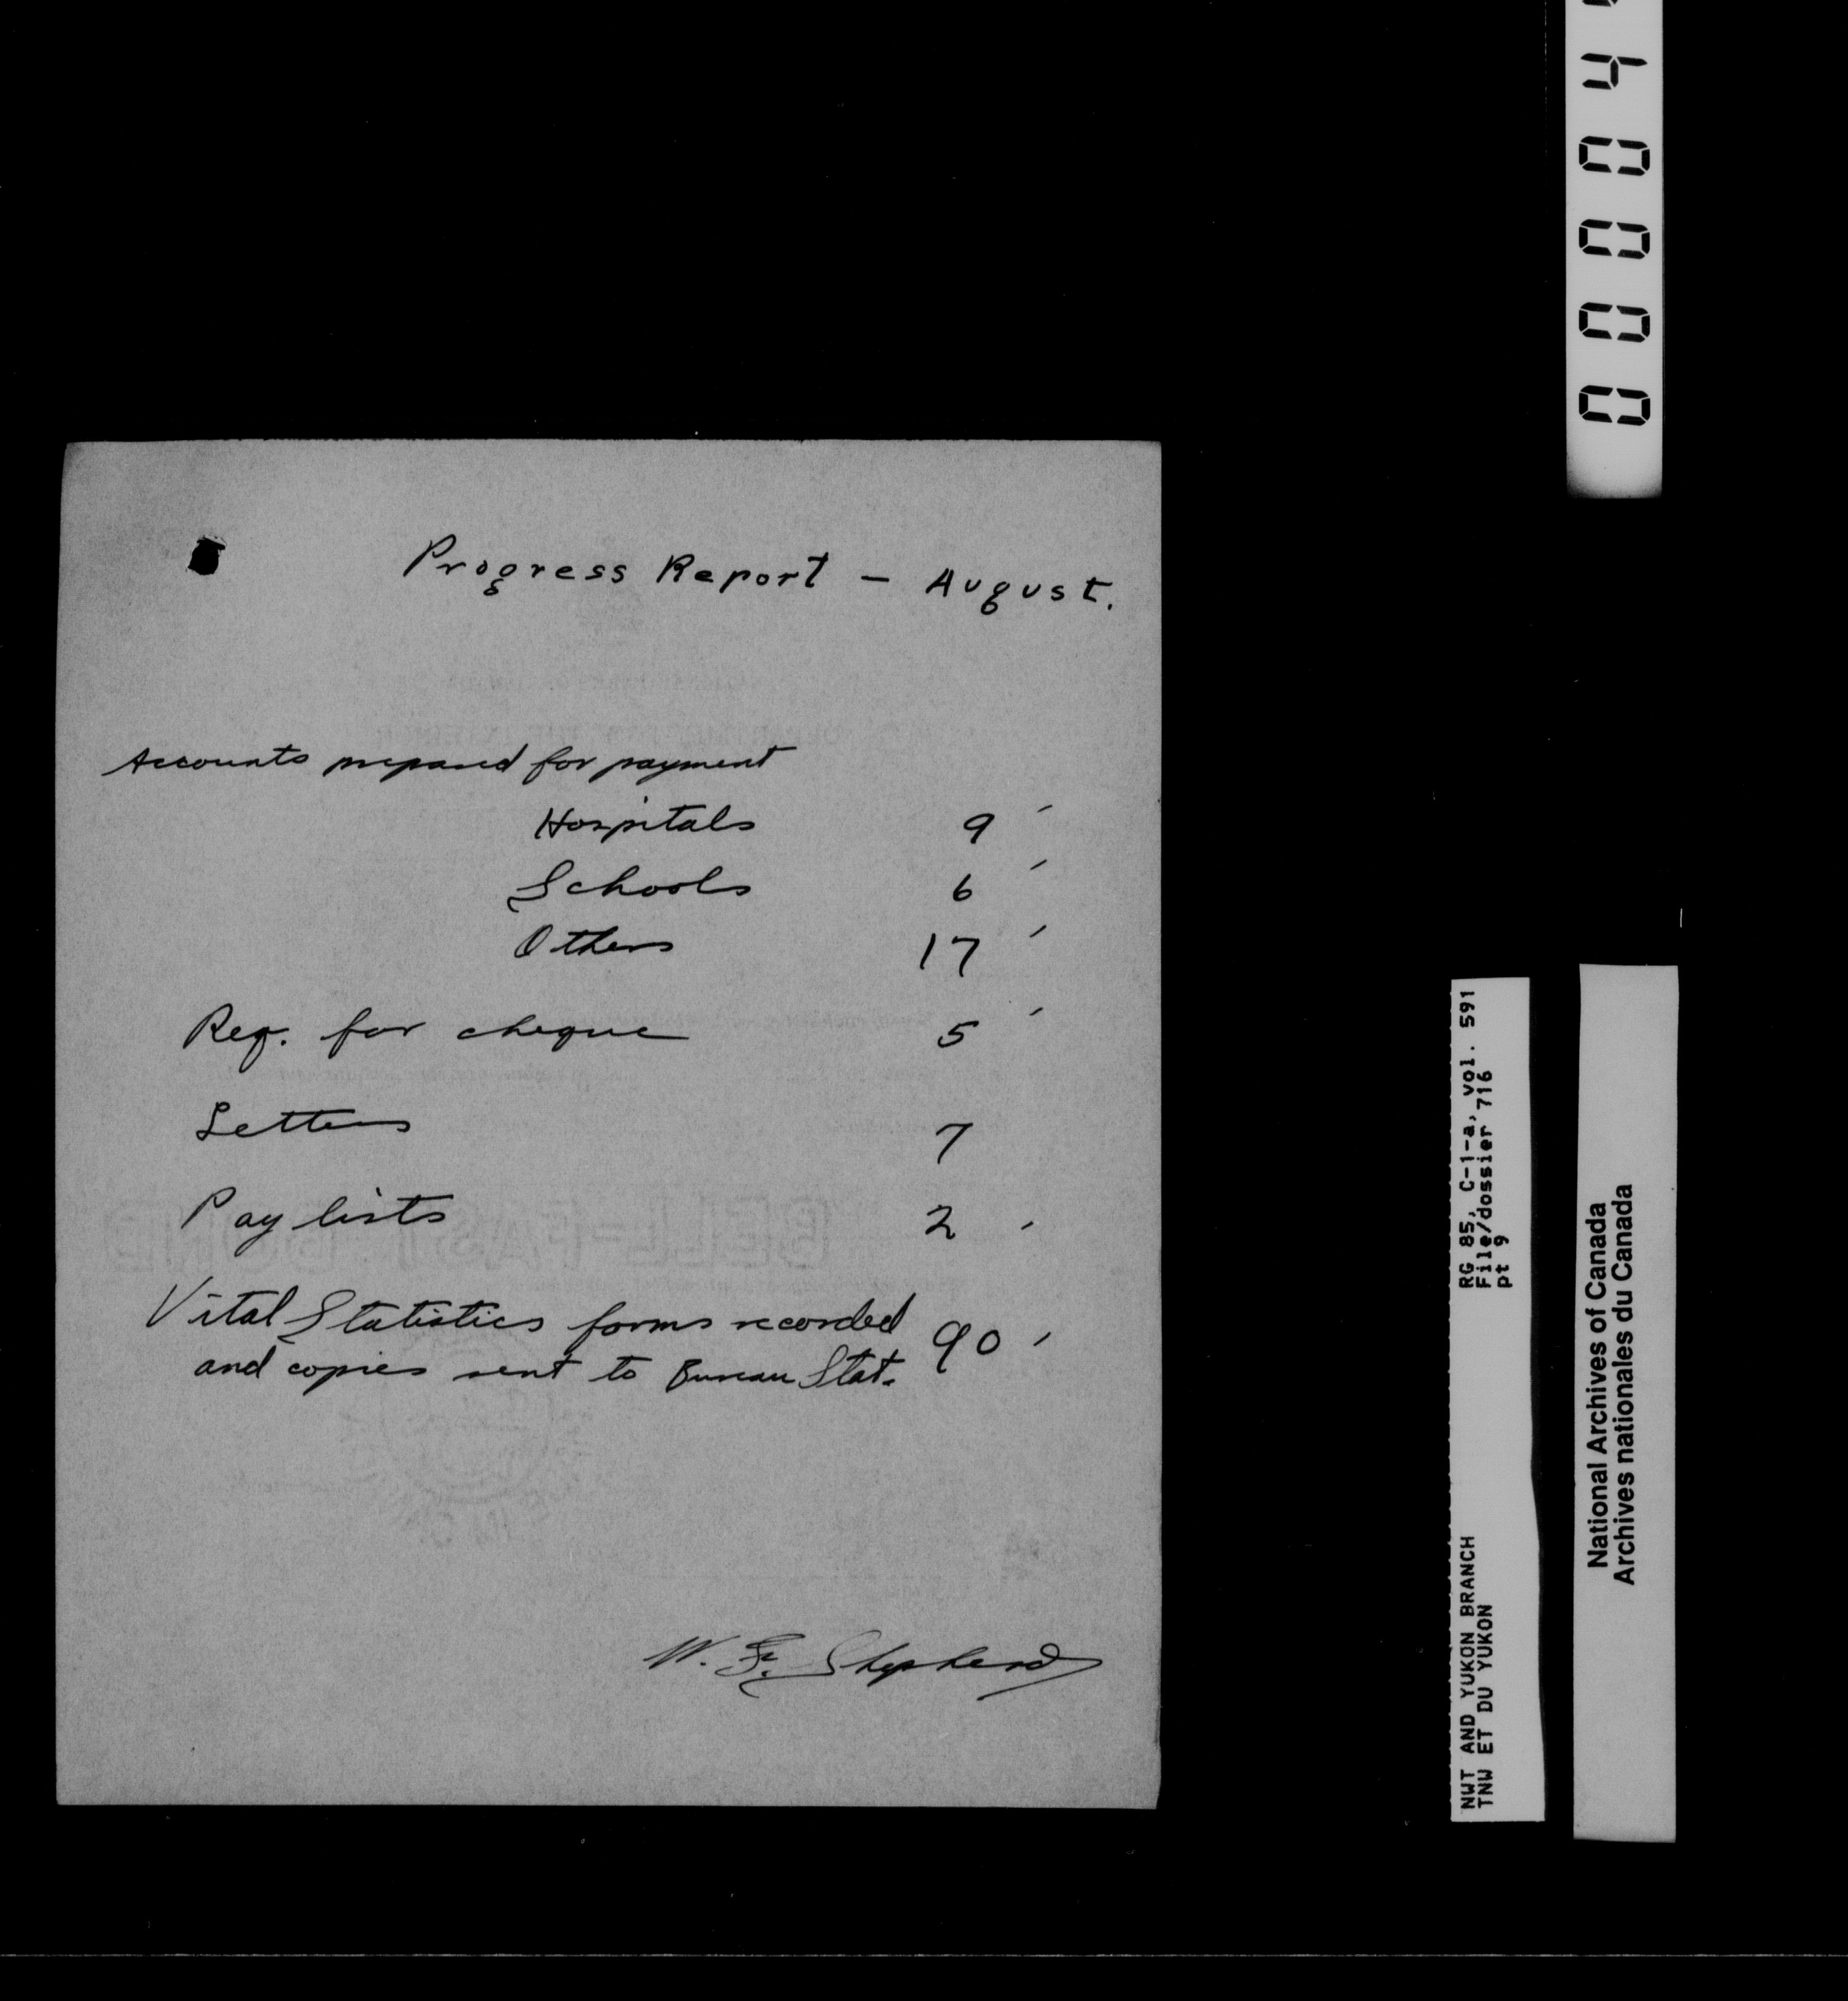 Progress Report - August.
Accounts prepared for payment
Hospitals 9
Schools 6
Others 17
Req. for cheque 5
Letters 7
Pay lists 2
Vital Statistics forms recorded 90
and copies sent to Bureau Stat.
W. F. Shepherd
RG 85, C-1-a, vol. 591
File/dossier 716
pt 9
NWT AND YUKON BRANCH
TNW ET DU YUKON
National Archives of Canada
Archives nationales du Canada